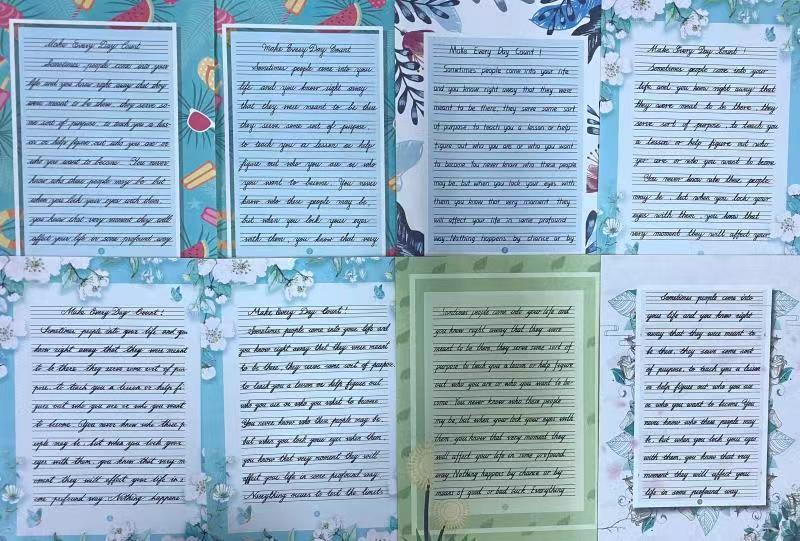 Make Every Day Count
Sometimes people come into your
life and you know right away that they
were meant to be there, they serve so-
me sort of purpose to teach you a les-
son or help figure out who you are or
who you want to become. You never
know who these people may be but
when you lock your eyes with them,
you know that very moment they will
affect your life in some profound way.
Make Every Day Count
Sometimes people come into your
life and you know right away
that they were meant to be there
they serve some sort of purpose,
to teach you a lesson or help
figure out who you are or who
you want to become. You never
know who these people may be,
but when you lock your eyes
with them, you know that very
Make Every Day Count !
Sometimes people come into your life
and you know right away that they were
meant to be there, they serve some sort
of purpose to teach you a lesson or help
figure out who you are or who you want
to become. You never know who these people
may be, but when you lock your eyes with
them, you know that very moment they
will affect your life in some profound
way. Nothing happens by chance or by
Make Every Day Count !
Sometimes people come into your
life and you know right away that
they were meant to be there, they
serve sort of purpose, to teach you
a lesson or help figure out who
you are or who you want to become
You never know who these people
may be, but when you lock your
eyes with them, you know that
very moment they will affect your
Make Every Day Count !
Sometimes people into your life and you
know right away that they were meant
to be there they serve some sort of pur
pose to teach you a lesson or help fi-
gure out who you are or who you want
to become. You never know who these p
eople may be, but when you lock your
eyes with them, you know that very m
oment they will affect your life in s
ome profound way. Nothing happens
Make Every Day Count !
Sometimes people come into your life and
you know right away that they were meant
to be there, they serve some sort of purpose,
to teach you a lesson or help figure out
who you are or who you what to become
You never know who these people may be,
but when you lock your eyes when them,
you know that very moment they will
affect your life in some profound way
to test the limits
Sometimes people come into your life and
you know right away that they were
meant to be there, they serve some sort of
purpose to teach you a lesson or help figure
out who you are or who you want to be-
come. You never know who these people
may be, but when you lock your eyes with
them, you know that very moment they
will affect your life in some profound
way. Nothing happens by chance or by
means of good or bad luck. Everything
Sometimes people come into
your life and you know right
away that they were meant to
be there, they serve some sort
of purpose, to teach you a lesson
or help figure out who you are
or who you want to become. You
never know who these people may
be, but when you lock your eyes
with them, you know that very
moment they will affect your
life in some profound way.